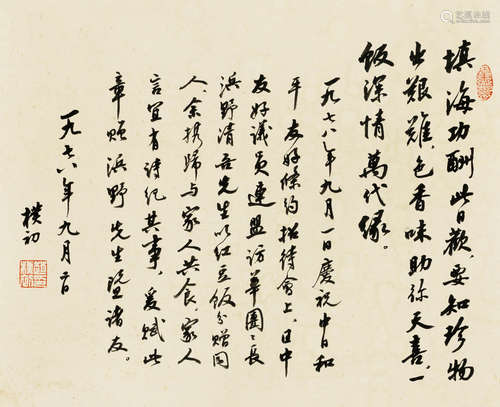 填海功酬此日歡。要知珍物
出艱難。色香味助弥天喜,一
飯深情萬代緣。
一九七八年九月一日慶祝中日和
平友好條約招待會上,日中
友好議員連盟訪華團〻長
浜野清吾先生以紅豆飯分贈同
人,余携歸与家人共食,家人
言宜有詩紀其事,爰賦此
章贈浜野先生暨諸友。
一九七八年九月二日
樸初